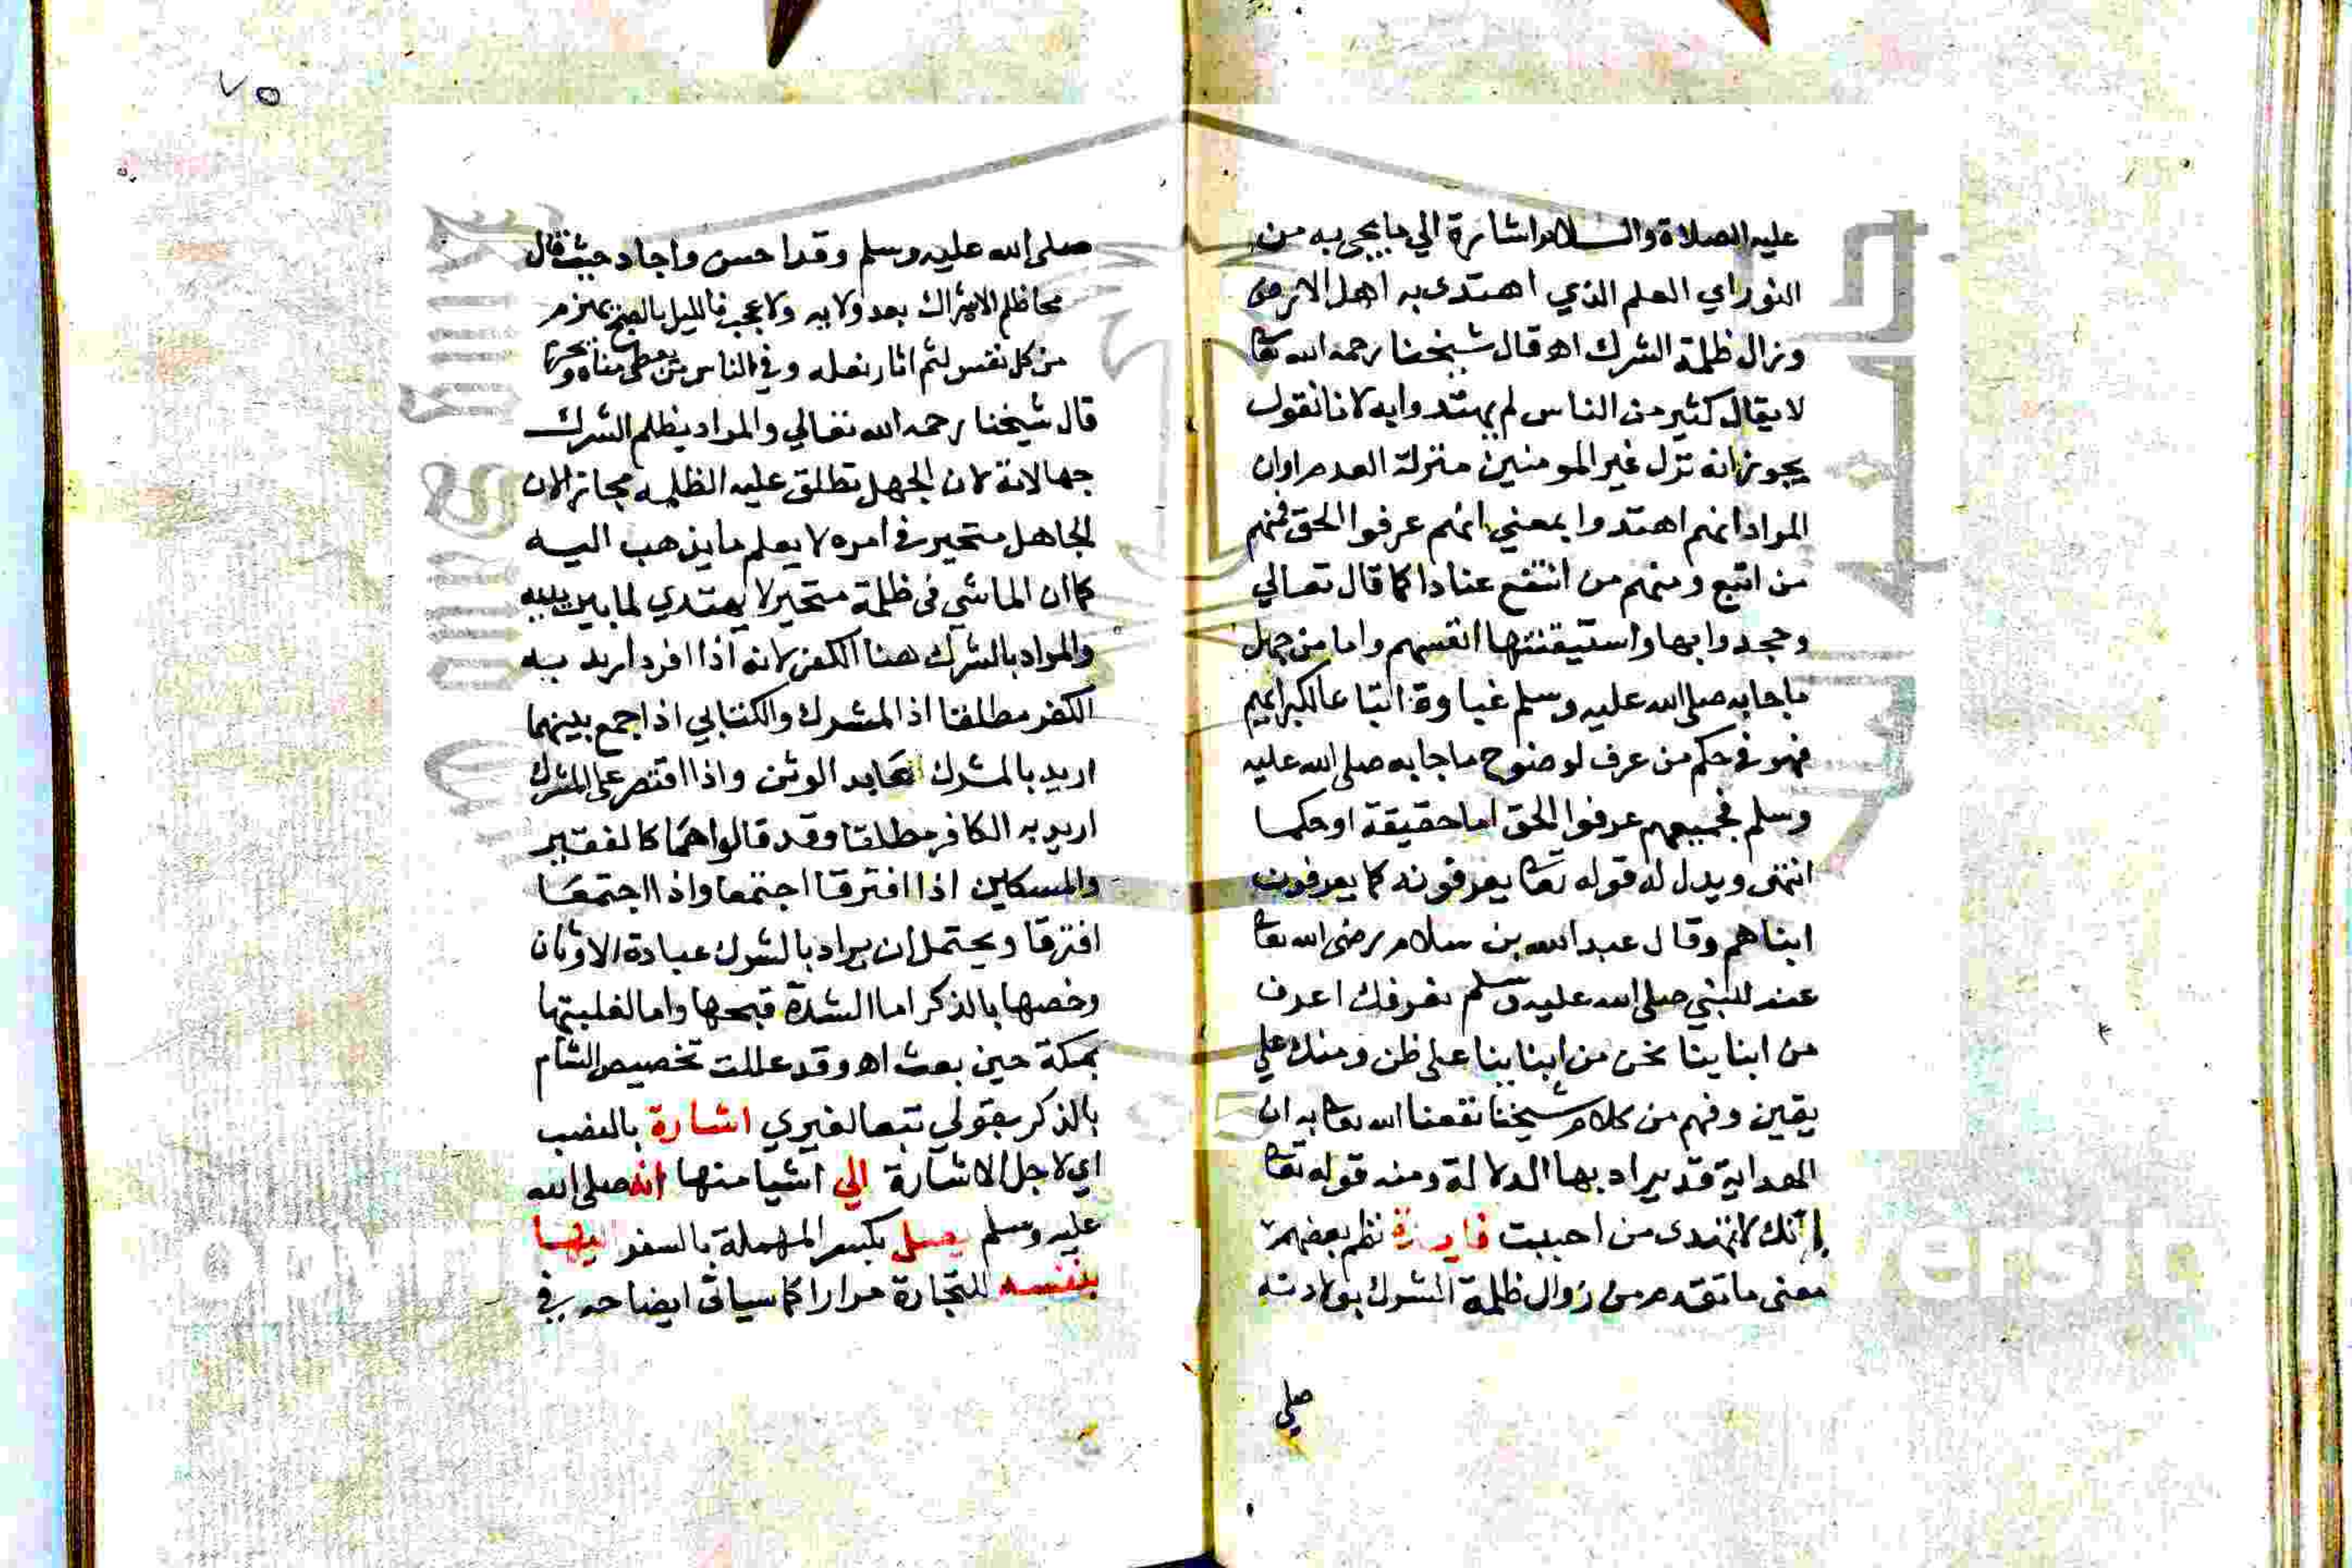 عليه الصلاة والسلام اشارة الي ما يجي به من
النور اي العلم الذي اهتدى به اهل الارض
وزال ظلمة الشرك اه قال شيخنا رحمه الله تعا
لا يقال كثير من الناس لم يهتدوا به لانا نقول
يجوز انه نزل غير المومنين منزلة العدم او ان
المواد انهم اهتدوا بمعني انهم عرفوا الحق فمنهم
من اتبع ومنهم من امتنع عنادا كما قال تعالي
وجحدوا بها واستيقنتها انفسهم واما من جهل
ما جا به صلى الله عليه وسلم غباوة اتباعا لكبرايهم
فهو في حكم من عرف لوضوح ما جا به صلى الله عليه
وسلم فجميعهم عرفوا الحق اما حقيقة او حكما
انتهى ويدل له قوله تعا يعرفونه كما يعرفون
ابناهم وقال عبد الله بن سلام رضى الله تعا
عنه للنبي صلى الله عليه وسلم نعرفك اعرف
من ابناينا نحن من ابناينا على ظن ومنك علي
يقين وفهم من كلام شيخنا نفعنا الله تعا به ان
الهداية قد يراد بها الدلالة ومنه قوله تعا
انك لا تهدى من احببت فايدة نظم بعضهم
معنى ما تقدم من زوال ظلمة الشرك بولادته
صلي
٧٥
صلى الله عليه وسلم وقد احسن واجاد حيث قال
محا ظلم الاشراك بعد ولايه ولا عجب فالليل بالصبح يهزم
من كل نفس لثم اثار نعله وفي الناس من
قال شيخنا رحمه الله تعالي والمواد بظلم الشرك
جهالاته لان الجهل تطلق عليه الظلمه مجازا لان
الجاهل متحير في امره لا يعلم ما يذهب اليه
كما ان الماشي في ظلمة متحير لا يهتدي لما بين يديه
والمواد بالشرك هنا الكفر لانه اذا افرد اريد به
الكفر مطلقا اذ المشرك والكتابي اذا جمع بينهما
اريد بالمشرك عابد الوثن واذا اقتصر على المشرك
اريد به الكافر مطلقا وقد قالوا هما كالفقير
والمسكين اذا افترقا اجتمعا واذا اجتمعا
افترقا ويحتمل ان يراد بالشرك عبادة الاوثان
وخصها بالذكر اما الشدة قبحها واما لغلبتها
بمكة حين بعث اه وقد عللت تخصيص الشام
بالذكر بقولي تبعا لغيري اشارة بالنصب
اي لاجل الاشارة الي اشيا منها انه صلى الله
عليه وسلم يصل بكسر المهملة بالسفر اليها
بنفسه للتجارة مرارا كما سياتى ايضاحه في